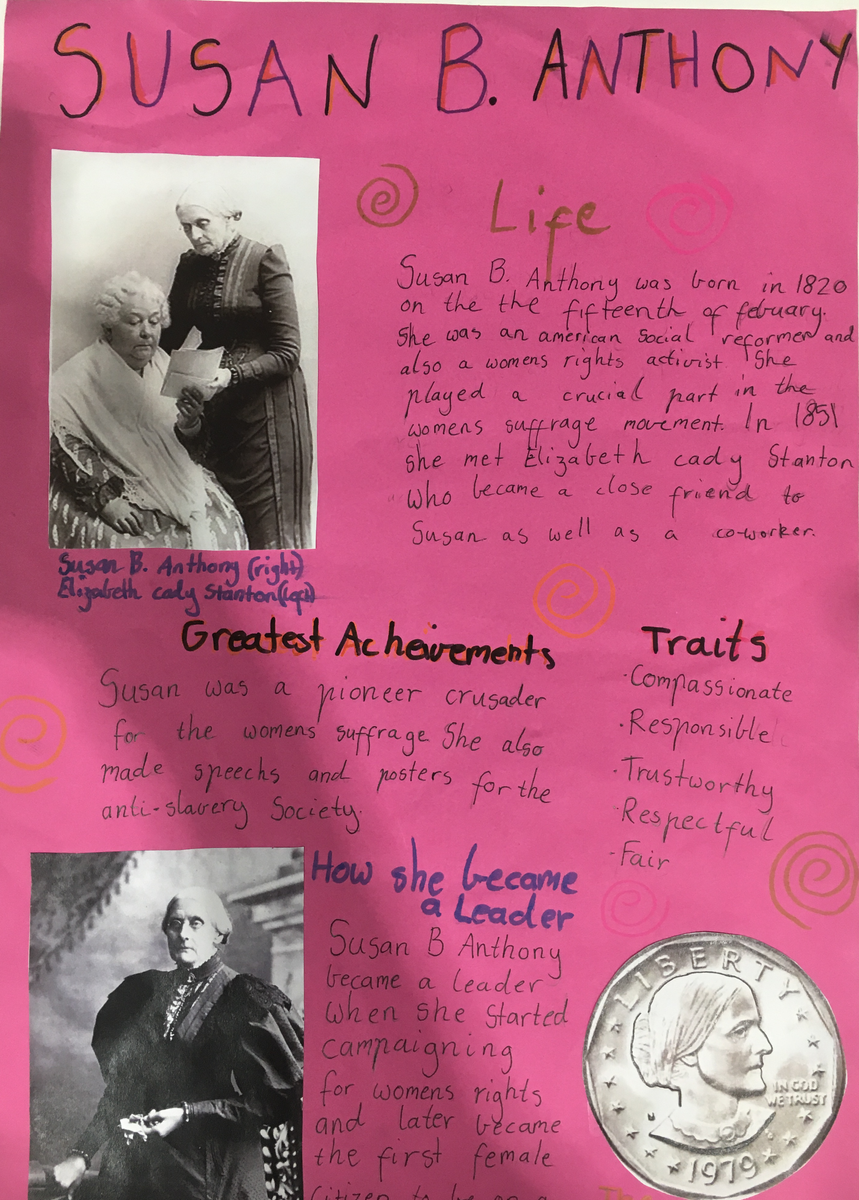 SUSAN B. ANTHONY
Life
Susan B. Anthony was born in 1820
on the the fifteenth of febuary.
She was an american social reformer and
also a womens rights activist She
played a crucial part in the
womens suffrage movement. In 1851
she met Elizabeth cady Stanton
who became a close friend to
Susan as well as a coworker.
Susan B. Anthony (right)
Elizabeth cady Stanton (left)
Greatest Acheivements
Susan was a pioneer crusader
for the womens suffrage She also
made speechs and posters for the
anti-slavery Society.
Traits
·Compassionate
·Responsible
·Trustworthy
·Respectful
·Fair
How she became
a Leader
Susan B Anthony
became a leader
when she started
campaigning
for womens rights
and later became
the first female
Citizen to be on a
LIBERTY
IN GOD
WE TRUST
1979